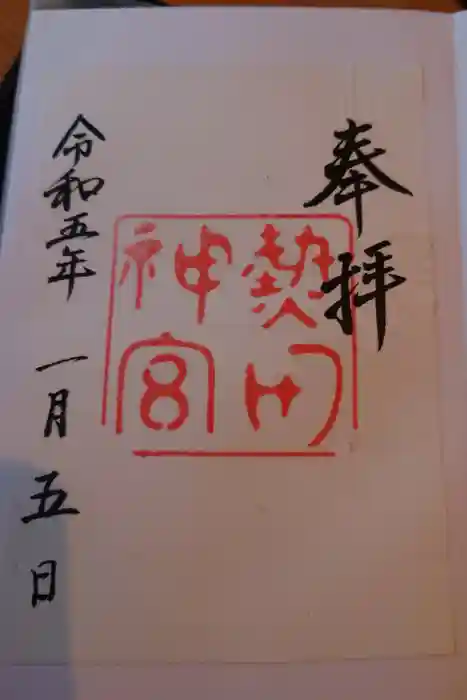 奉拝
熱田
神宮
令和五年 一月五日